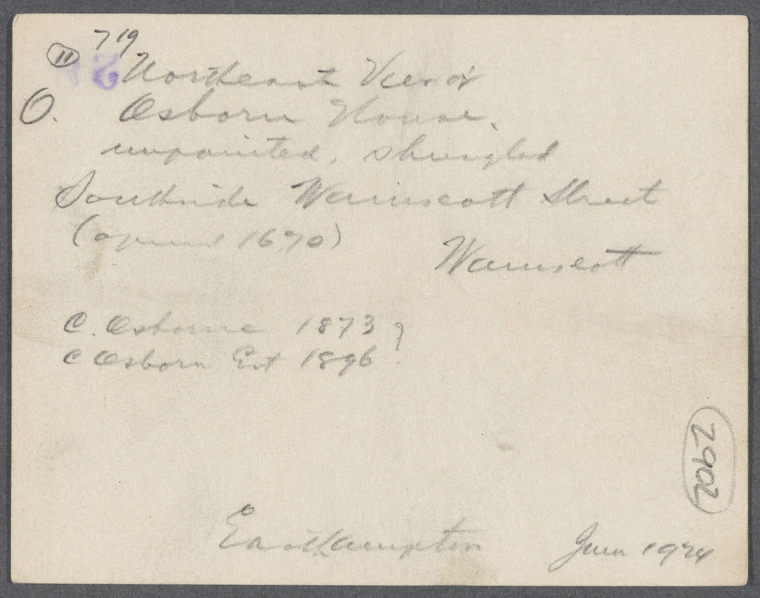 719
11
Northeast View of
O. Osborn House,
unpainted, shingled
Southside Wainscott Street
(opened 1670)
Wainscott
C. Osborne 1873 ?
C Osborn Est 1896
2902
Easthampton June 1924